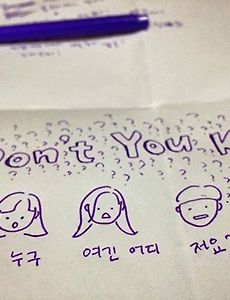 Don't You K
누구 여긴 어디 저요?